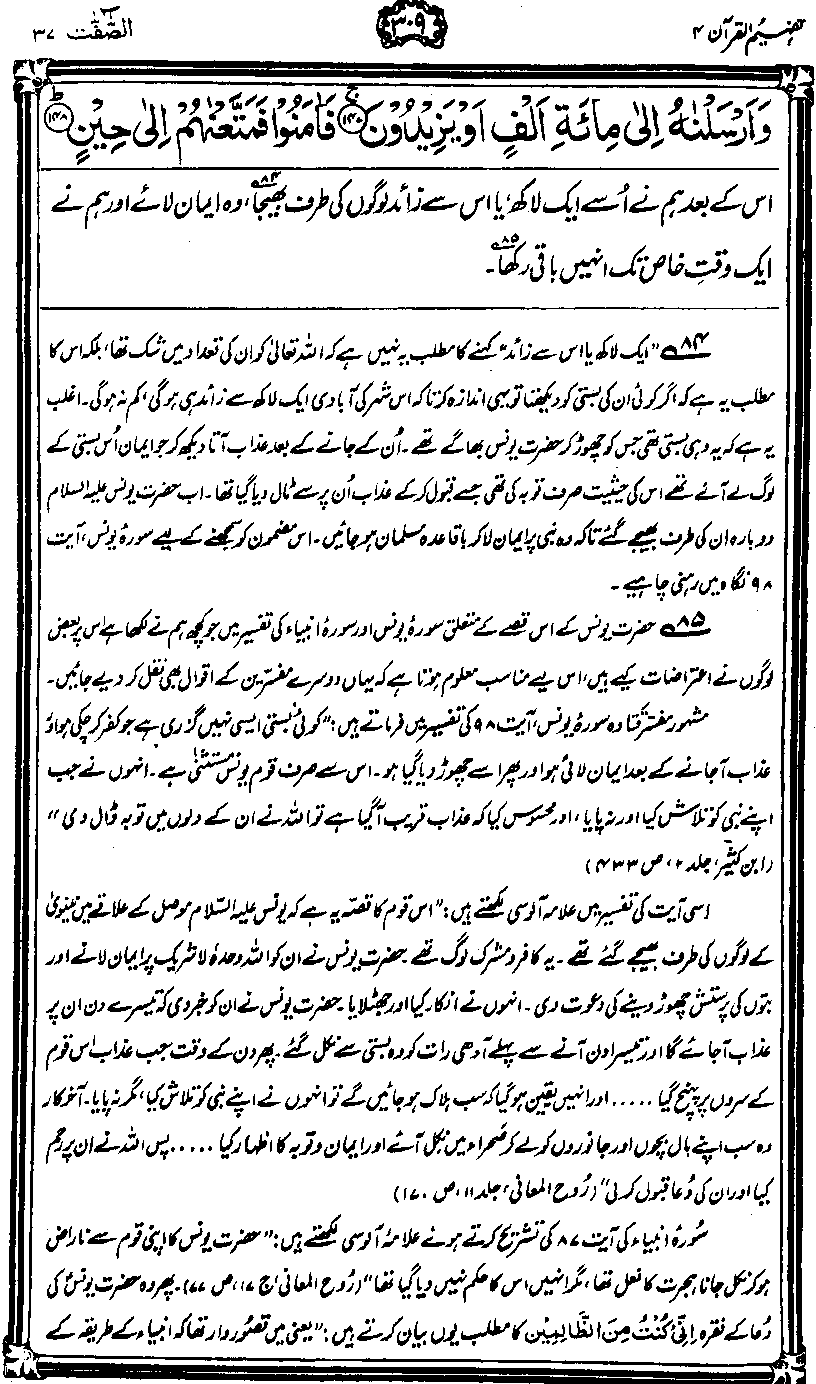 تفہیم القرآن ۴ ۳۰۹ الصّٰفّٰت ۳۷
وَاَرْسَلْنٰهُ اِلٰى مِائَةِ اَلْفٍ اَوْ يَزِيْدُوْنَ ﴿۱۴۷﴾ فَاٰمَنُوْا فَمَتَّعْنٰهُمْ اِلٰى حِيْنٍ ﴿۱۴۸﴾
اس کے بعد ہم نے اُسے ایک لاکھ، یا اس سے زائد لوگوں کی طرف بھیجا،۸۴ وہ ایمان لائے اور ہم نے
ایک وقتِ خاص تک انہیں باقی رکھا۸۵۔
۸۴ ”ایک لاکھ یا اس سے زائد“ کہنے کا مطلب یہ نہیں ہے کہ اللہ تعالیٰ کو ان کی تعداد میں شک تھا، بلکہ اس کا
مطلب یہ ہے کہ اگر کوئی ان کی بستی کو دیکھتا تو یہی اندازہ کرتا کہ اس شہر کی آبادی ایک لاکھ سے زائد ہی ہو گی، کم نہ ہو گی۔ اغلب
یہ ہے کہ یہ وہی بستی تھی جس کو چھوڑ کر حضرت یونس بھاگے تھے۔ اُن کے جانے کے بعد عذاب آتا دیکھ کر جو ایمان اُس بستی کے
لوگ لے آئے تھے اس کی حیثیت صرف توبہ کی تھی جسے قبول کر کے عذاب اُن پر سے ٹال دیا گیا تھا۔ اب حضرت یونس علیہ السلام
دوبارہ ان کی طرف بھیجے گئے تاکہ وہ نبی پر ایمان لا کر باقاعدہ مسلمان ہو جائیں۔ اس مضمون کو سمجھنے کے لیے سورۂ یونس، آیت
۹۸ نگاہ میں رہنی چاہیے۔
۸۵ حضرت یونس کے اس قصے کے متعلق سورۂ یونس اور سورۂ انبیاء کی تفسیر میں جو کچھ ہم نے لکھا ہے اس پر بعض
لوگوں نے اعتراضات کیے ہیں، اس لیے مناسب معلوم ہوتا ہے کہ یہاں دوسرے مفسرین کے اقوال بھی نقل کر دیے جائیں۔
مشہور مفسر قتادہ سورۂ یونس، آیت ۹۸ کی تفسیر میں فرماتے ہیں: ”کوئی بستی ایسی نہیں گزری ہے جو کفر کر چکی ہو اور
عذاب آ جانے کے بعد ایمان لائی ہو اور پھر اسے چھوڑ دیا گیا ہو۔ اس سے صرف قوم یونس مستثنیٰ ہے۔ انہوں نے جب
اپنے نبی کو تلاش کیا اور نہ پایا، اور محسوس کیا کہ عذاب قریب آ گیا ہے تو اللہ نے ان کے دلوں میں توبہ ڈال دی“
(ابن کثیر، جلد ۲، ص ۴۳۳)
اسی آیت کی تفسیر میں علامہ آلوسی لکھتے ہیں: ”اس قوم کا قصہ یہ ہے کہ یونس علیہ السّلام موصل کے علاقے میں نینویٰ
کے لوگوں کی طرف بھیجے گئے تھے۔ یہ کافر و مشرک لوگ تھے۔ حضرت یونس نے ان کو اللہ وحدہٗ لا شریک پر ایمان لانے اور
بتوں کی پرستش چھوڑ دینے کی دعوت دی۔ انہوں نے انکار کیا اور جھٹلایا۔ حضرت یونس نے ان کو خبر دی کہ تیسرے دن ان پر
عذاب آ جائے گا اور تیسرا دن آنے سے پہلے آدھی رات کو وہ بستی سے نکل گئے۔ پھر دن کے وقت جب عذاب اس قوم
کے سروں پر پہنچ گیا ..... اور انہیں یقین ہو گیا کہ سب ہلاک ہو جائیں گے تو انہوں نے اپنے نبی کو تلاش کیا، مگر نہ پایا۔ آخر کار
وہ سب اپنے بال بچوں اور جانوروں کو لے کر صحراء میں نکل آئے اور ایمان و توبہ کا اظہار کیا ..... پس اللہ نے ان پر رحم
کیا اور ان کی دُعا قبول کر لی“ (رُوح المعانی، جلد ۱۱، ص ۱۷۰)
سُورۂ انبیاء کی آیت ۸۷ کی تشریح کرتے ہوئے علامہ آلوسی لکھتے ہیں: ”حضرت یونس کا اپنی قوم سے ناراض
ہو کر نکل جانا ہجرت کا فعل تھا، مگر انہیں اس کا حکم نہیں دیا گیا تھا“ (رُوح المعانی، ج ۱۷، ص ۷۷)۔ پھر وہ حضرت یونسؑ کی
دُعا کے فقرہ اِنِّیْ كُنْتُ مِنَ الظَّالِمِيْن کا مطلب یوں بیان کرتے ہیں: ”یعنی میں قصور وار تھا کہ انبیاء کے طریقہ کے